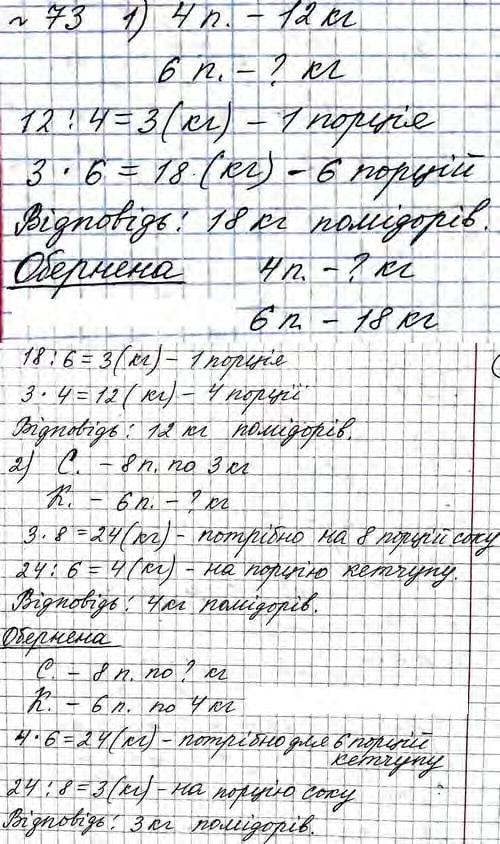 № 73 1) 4 п. – 12 кг
6 п. – ? кг
12 : 4 = 3 (кг) – 1 порція
3 · 6 = 18 (кг) – 6 порцій
Відповідь: 18 кг помідорів.
Обернена 4 п. – ? кг
6 п. – 18 кг
18 : 6 = 3 (кг) – 1 порція
3 · 4 = 12 (кг) – 4 порції
Відповідь: 12 кг помідорів.
2) С. – 8 п. по 3 кг
К. – 6 п. – ? кг
3 · 8 = 24 (кг) – потрібно на 8 порцій соку
24 : 6 = 4 (кг) – на порцію кетчупу.
Відповідь: 4 кг помідорів.
Обернена
С. – 8 п. по ? кг
К. – 6 п. по 4 кг
4 · 6 = 24 (кг) – потрібно для 6 порцій
кетчупу
24 : 8 = 3 (кг) – на порцію соку
Відповідь: 3 кг помідорів.